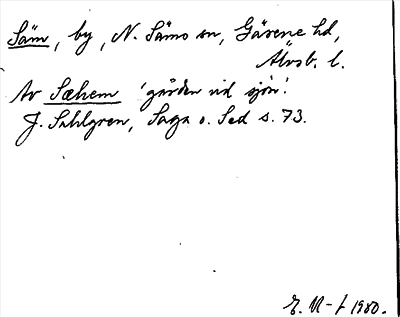 Säm, by, N. Säms sn, Gäsene hd,
Älvsb. l.
Av Sæhem 'gården vid sjön'.
J. Sahlgren, Saga o. Sed s. 73.
1980.